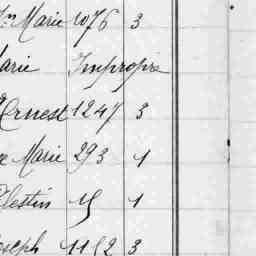 Marie 1076 3
Marie Impropre
Ernest 1247 3
Marie 293 1
lestin 1
Joseph 3